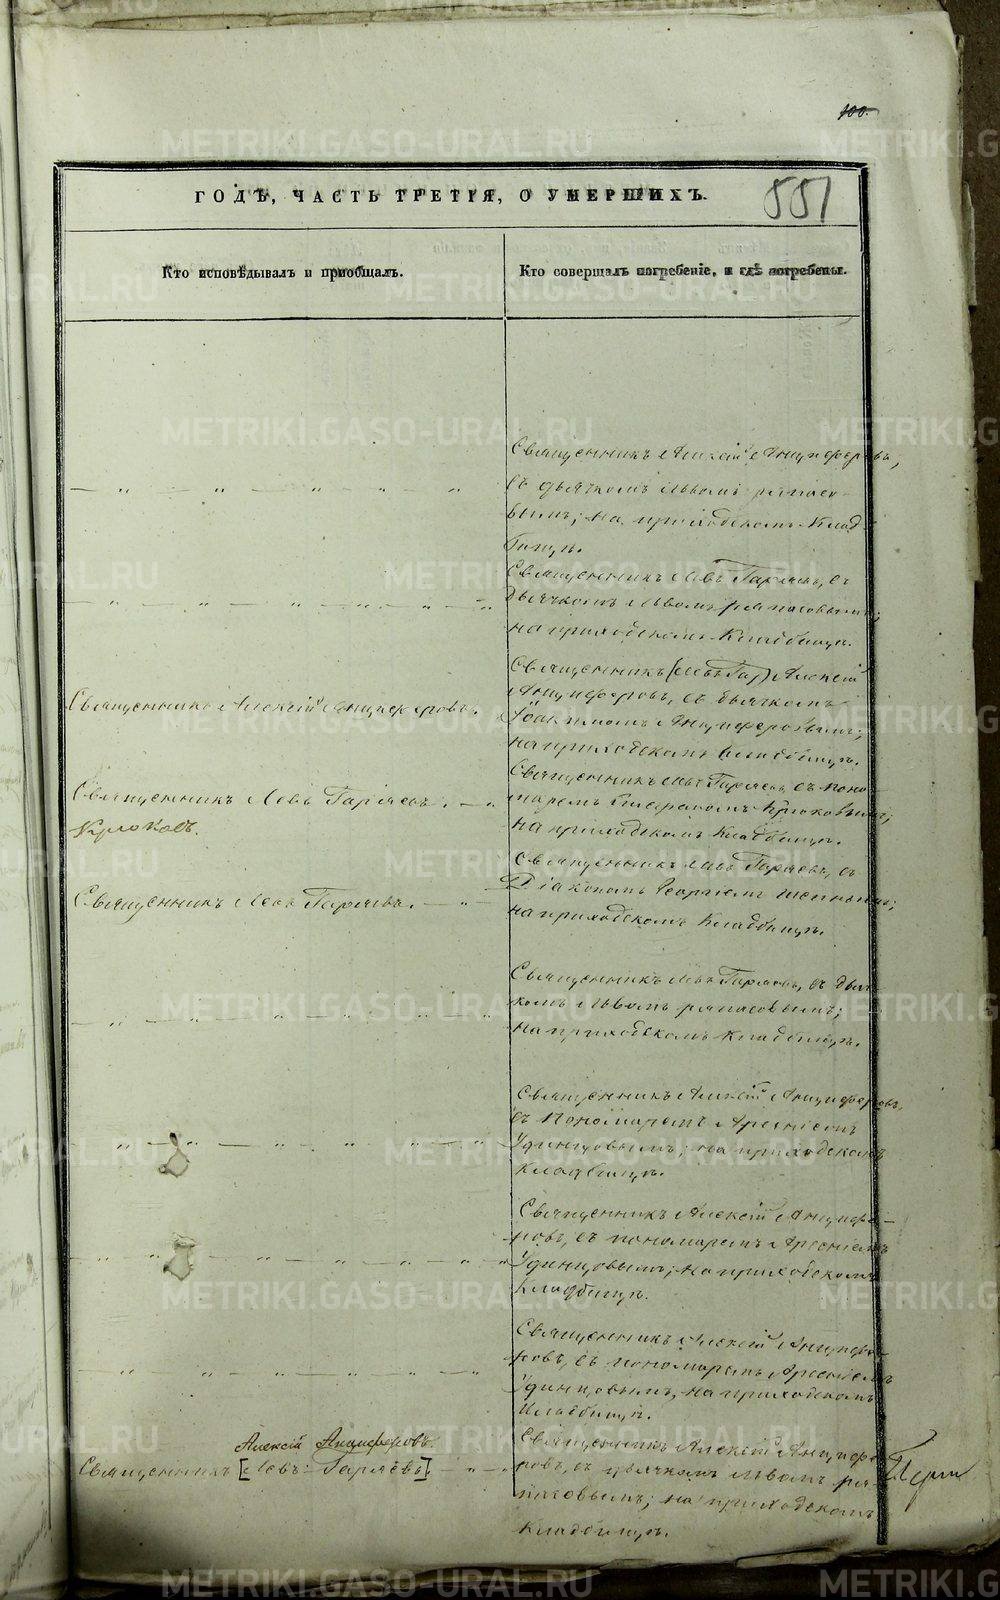 100.
ГОДЪ, ЧАСТЬ ТРЕТІЯ, О УМЕРШИХЪ.
551
Кто исповѣдывалъ и пріобщалъ.
Кто совершалъ погребеніе, и гдѣ погребены.
Священникъ Алексій Анциферовъ,
съ дьячкомъ Львомъ
вымъ; на приходскомъ Клад
бищѣ.
Священникъ Левъ Гаряевъ, съ
Дьячкомъ Львомъ
на приходскомъ Кладбищѣ.
Священникъ Алексій Анциферовъ.
Священникъ (Левъ Гар) Алексій
Анциферовъ, съ дьячкомъ
Іоакимомъ Анциферовымъ;
на приходскомъ Кладбищѣ.
Священникъ Левъ Гаряевъ.
Крюковъ.
Священникъ Левъ Гаряевъ, съ поно
маремъ Крюковымъ;
на приходскомъ Кладбищѣ.
Священникъ Левъ Гаряевъ.
Священникъ Левъ Гаряевъ, съ
Діакономъ Георгіемъ
на приходскомъ Кладбищѣ.
Священникъ Левъ Гаряевъ, съ дьяч
комъ Львомъ
на приходскомъ Кладбищѣ.
Священникъ Алексій Анциферовъ,
съ Пономаремъ Арсеніемъ
Удинцовымъ; на приходскомъ
Кладбищѣ.
Священникъ Алексій Анцифе-
ровъ, съ пономаремъ Арсеніемъ
Удинцовымъ; на приходскомъ
Кладбищѣ.
Священникъ Алексій Анцифе-
ровъ, съ пономаремъ Арсеніемъ
Удинцовымъ, на приходскомъ
Кладбищѣ.
Алексій Анциферовъ.
Священникъ [Левъ Гаряевъ]
Священникъ Алексій Анцифе-
ровъ, съ дьячкомъ Львомъ
на приходскомъ
Кладбищѣ.